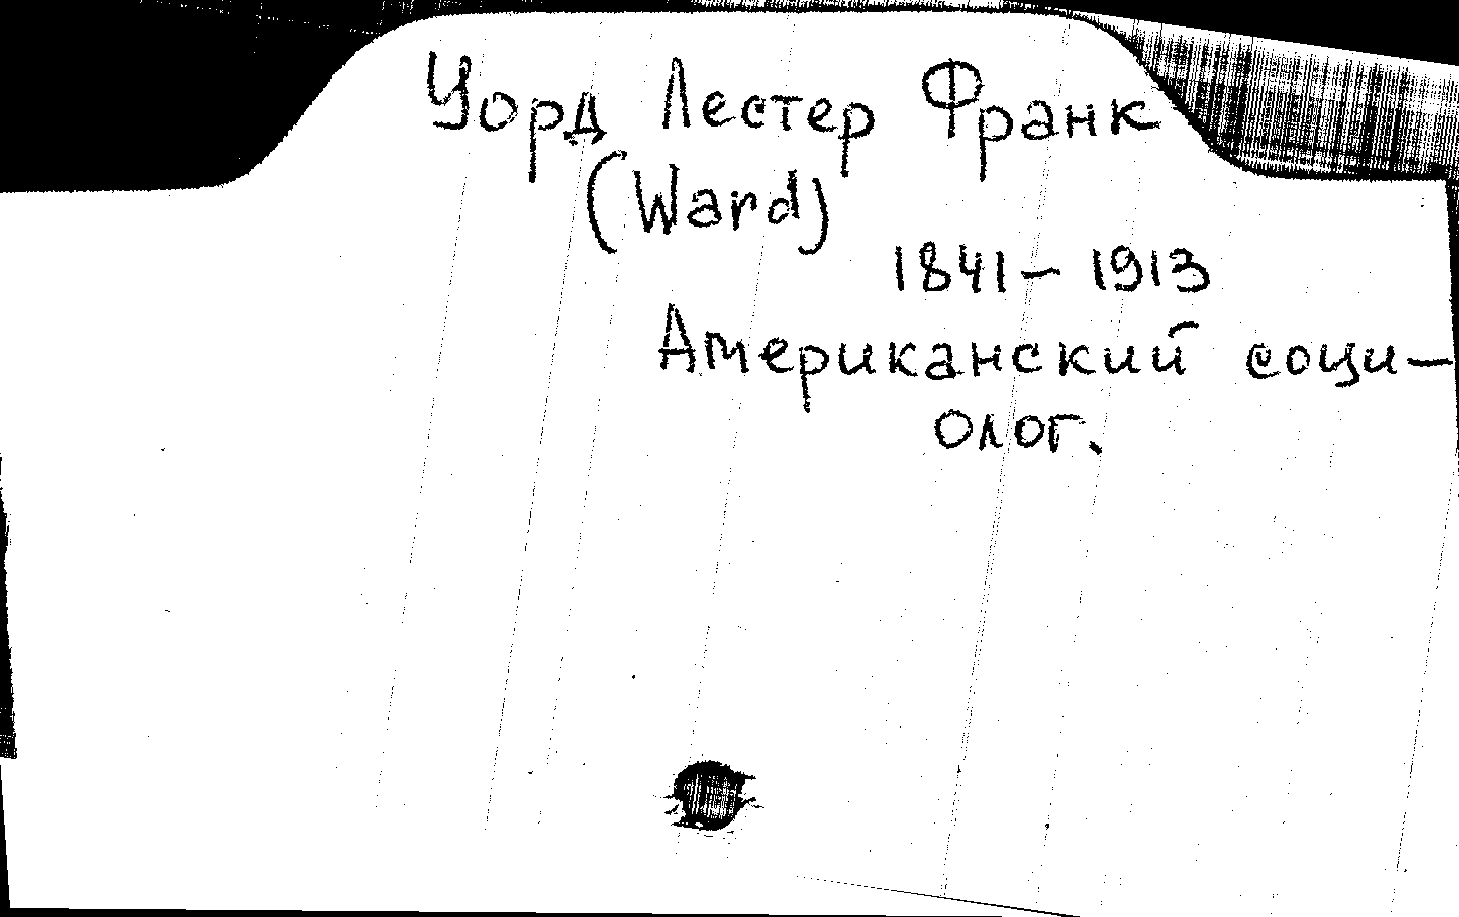 Уорд Лестер Франк
(Ward)
1841 – 1913
Американский соци–
олог.